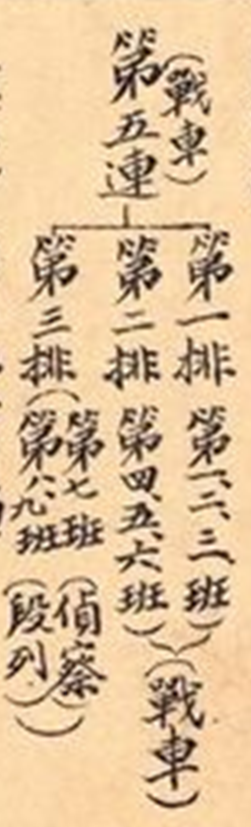 第五連(戰車)
第一排(第一、二、三班)
第二排(第四、五、六班)
(戰車)
第三排(第七班(偵察)
第八、九班(段列))